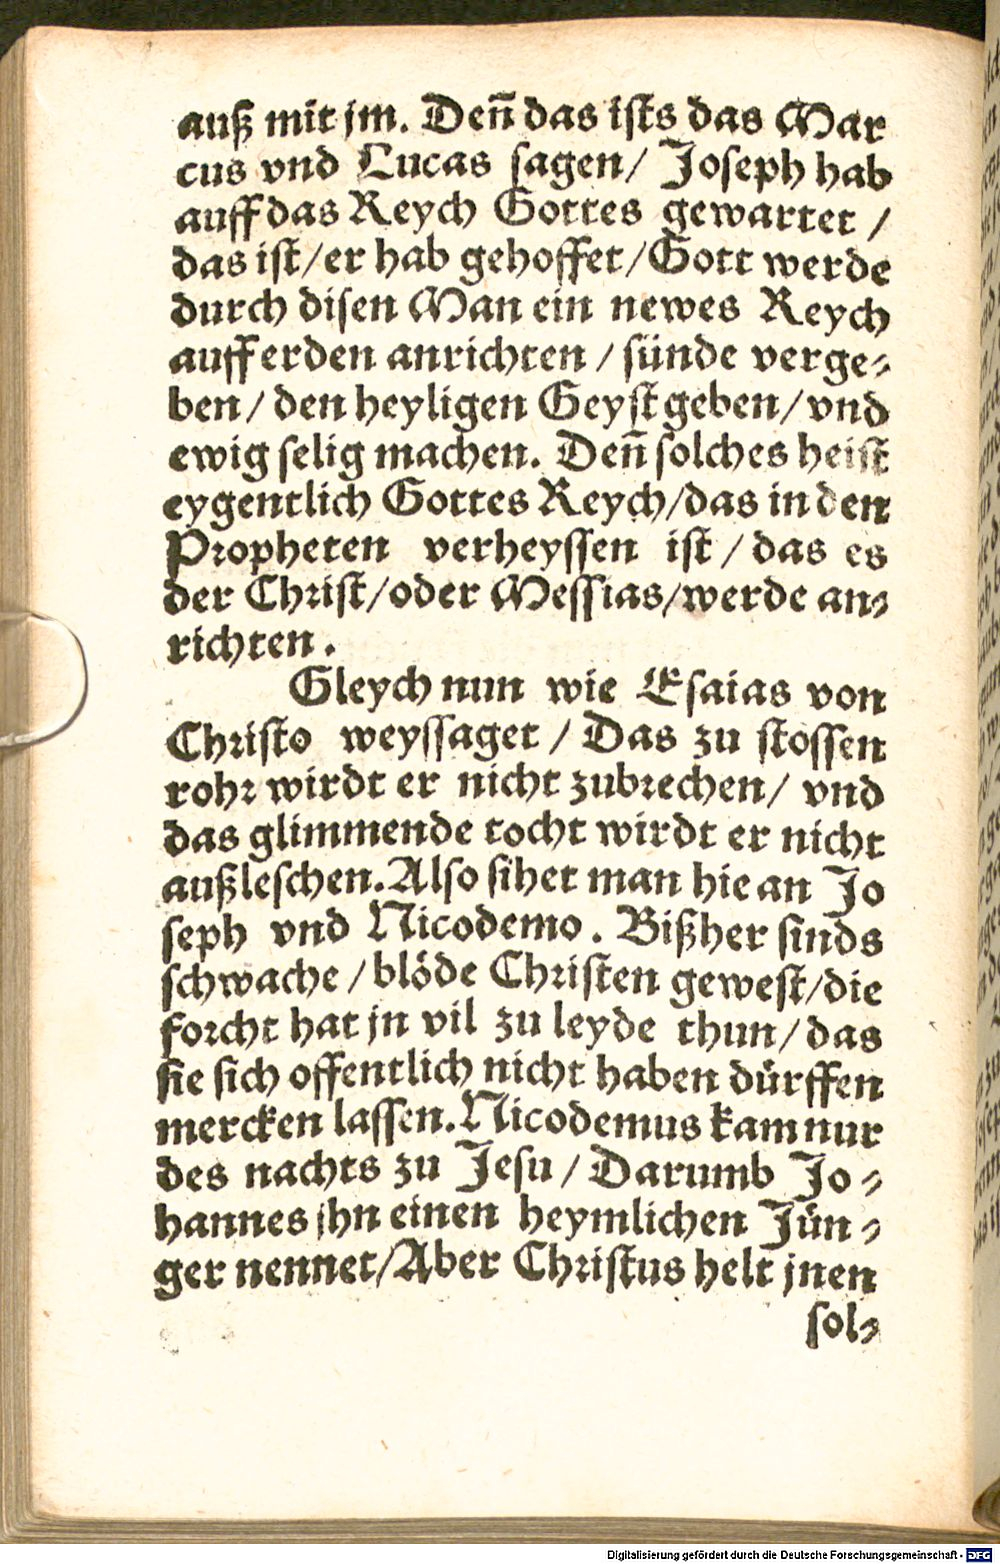 auß mit jm. Deñ das ists das Mar
cus vnd Lucas sagen/ Joseph hab
auff das Reych Gottes gewartet /
das ist/er hab gehoffet/Gott werde
durch disen Man ein newes Reych
auff erden anrichten / sünde verge-
ben/ den heyligen Geyst geben/ vnd
ewig selig machen. Deñ solches heist
eygentlich Gottes Reych/das in den
Propheten verheyssen ist / das es
der Christ/oder Messias/werde an-
richten.
Gleych nun wie Esaias von
Christo weyssaget / Das zu stossen
rohr wirdt er nicht zubrechen/ vnd
das glimmende tocht wirdt er nicht
außleschen. Also sihet man hie an Jo
seph vnd Nicodemo. Bißher sinds
schwache / blöde Christen gewest/die
forcht hat jn vil zu leyde thun/ das
sie sich offentlich nicht haben dürffen
mercken lassen. Nicodemus kam nur
des nachts zu Jesu / Darumb Jo-
hannes jhn einen heymlichen Jün-
ger nennet/Aber Christus helt jnen
sol-
Digitalisierung gefördert durch die Deutsche Forschungsgemeinschaft - DFG